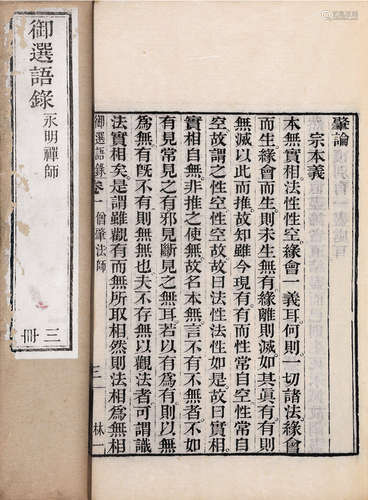 肇論
宗本義
本無實相法性性空緣會一義耳何則一切諸法緣會
而生緣會而生則未生無有緣離則滅如其真有有則
無滅以此而推故知雖今現有有而性常自空性常自
空故謂之性空性空故故曰法性法性如是故曰實相
實相自無非推之使無故名本無言不有不無者不如
有見常見之有邪見斷見之無耳若以有為有則以無
為無有旣不有則無無也夫不存無以觀法者可謂識
法實相矣是謂雖觀有而無所取相然則法相為無相
御選語錄 卷一 僧肇法師 三 林一
御選語錄
永明禪師
三冊